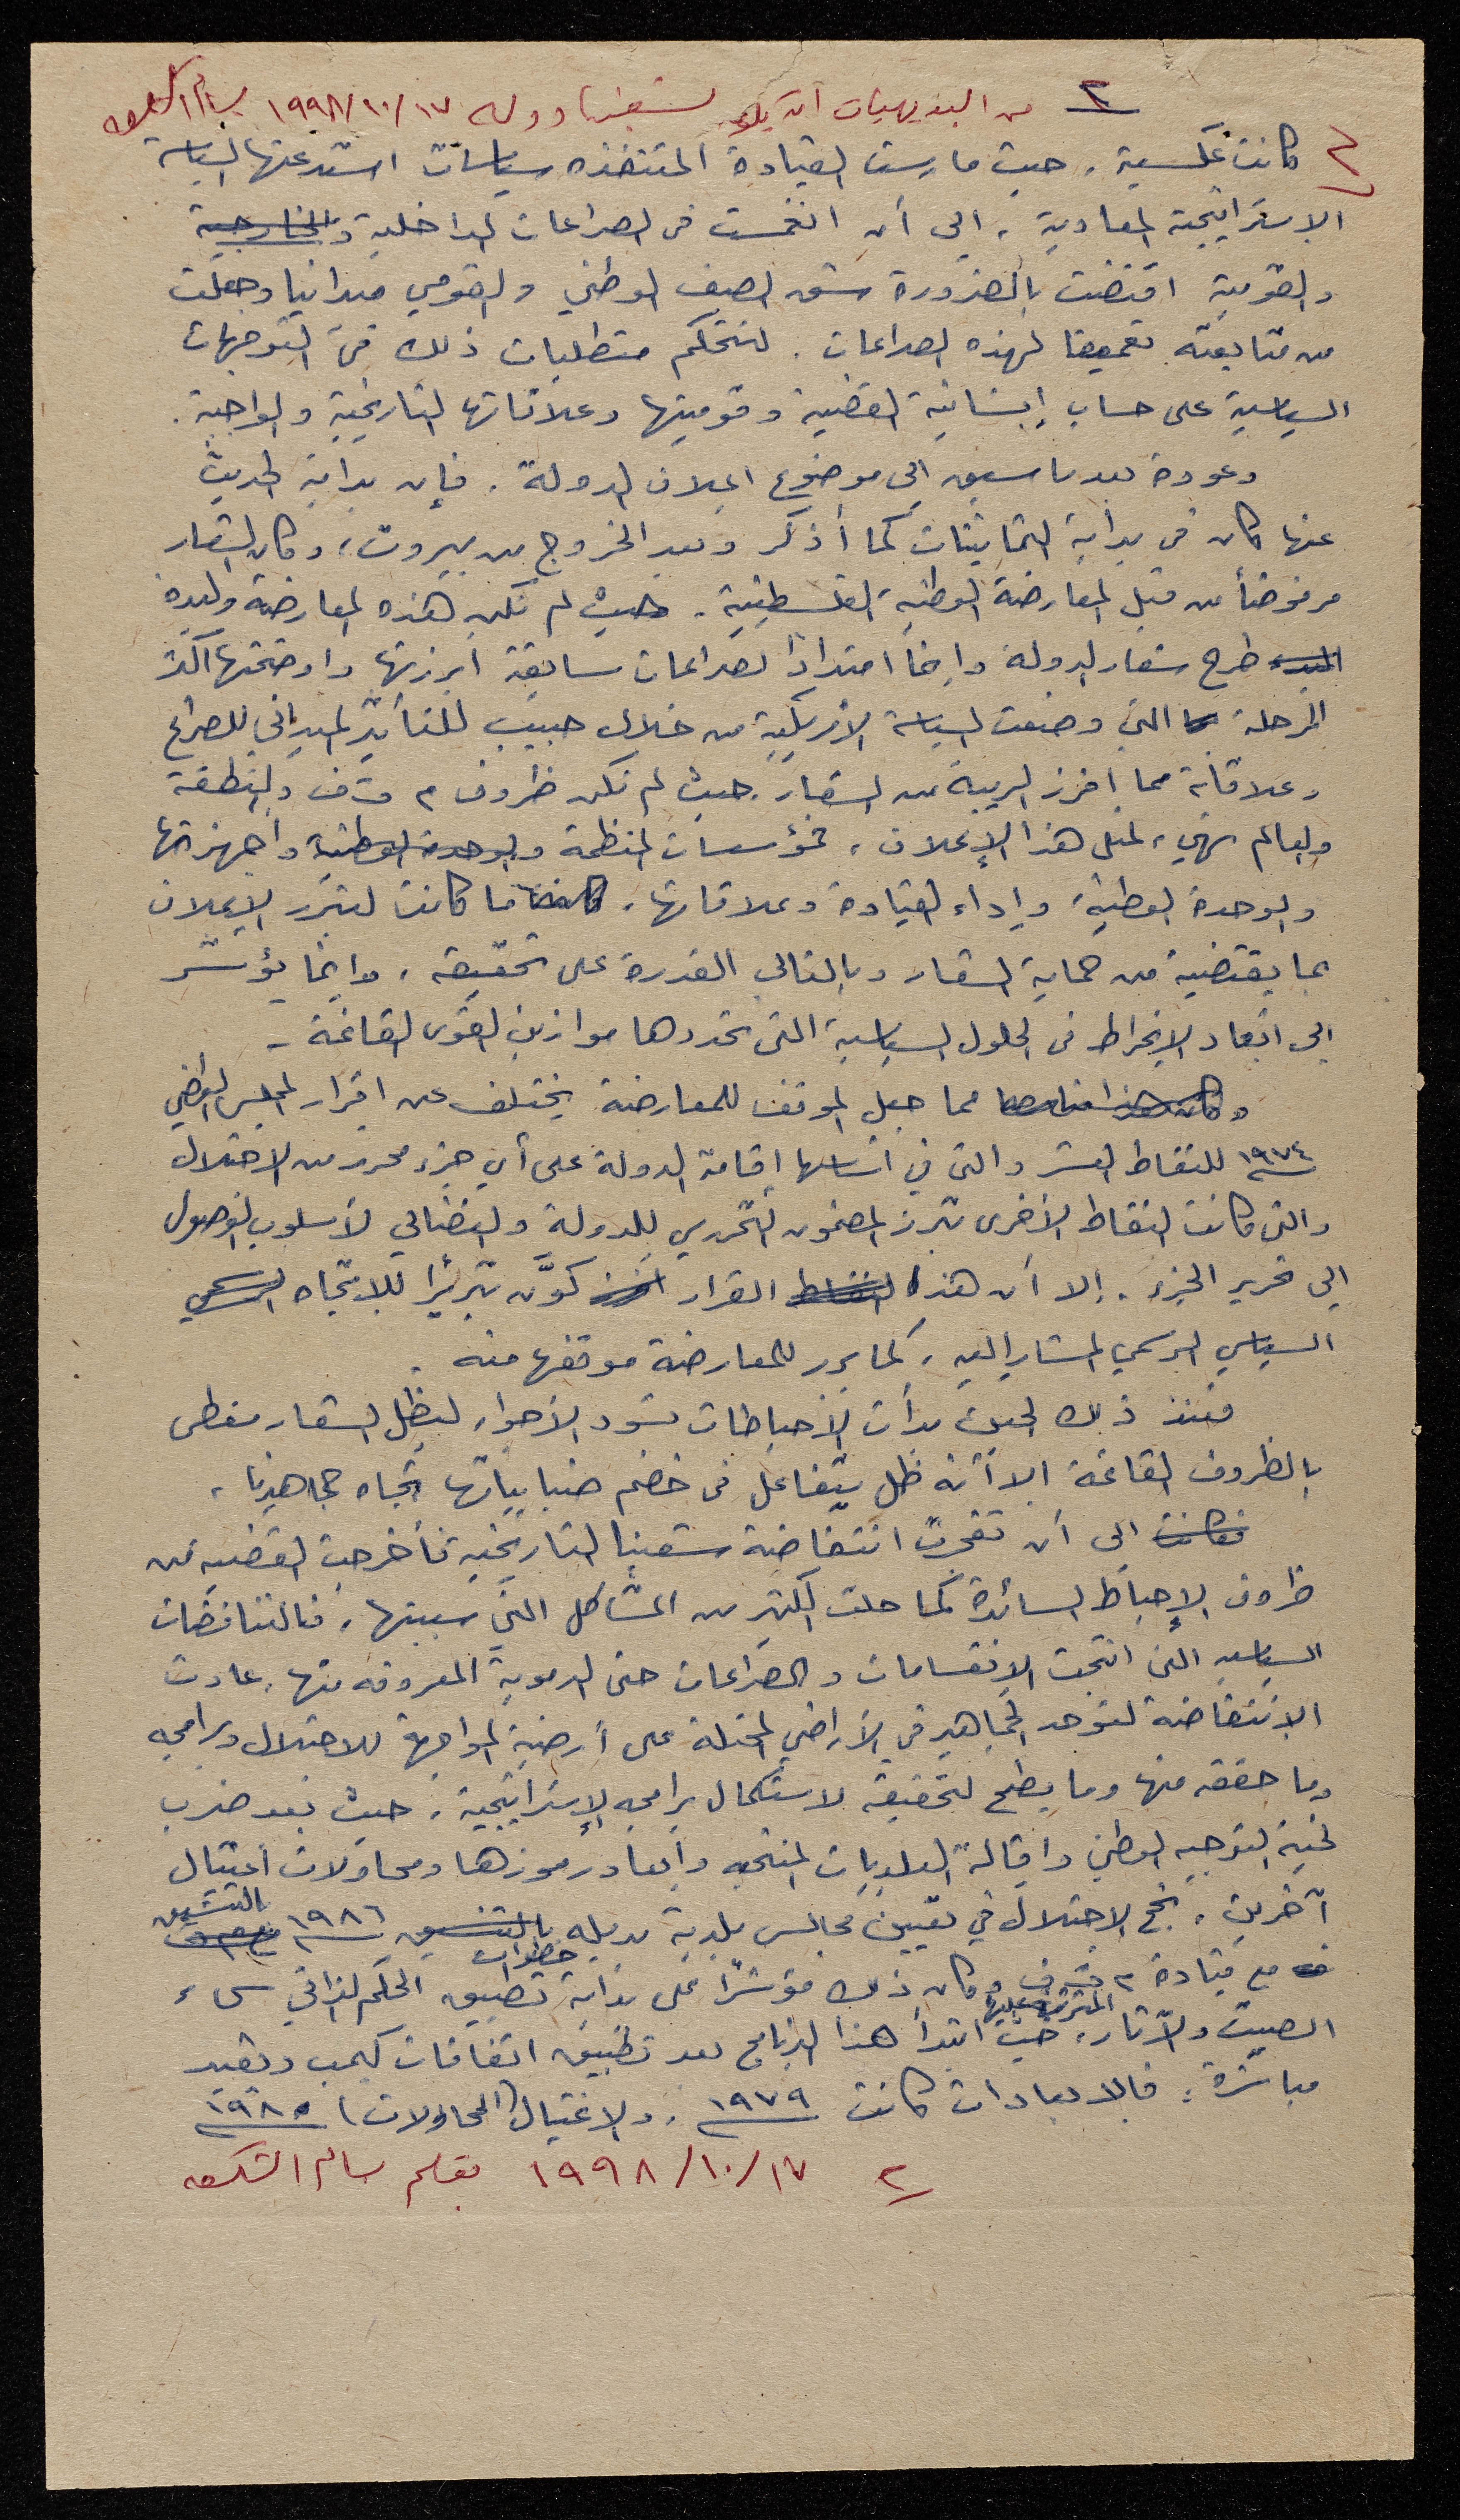 ٢ من البديهيات أن يكون لشعبنا دولة ١٧/١٠/١٩٩٨ بسام الشكعه
كانت عكسية، حيث مارست القيادة المتنفذه سياسات استدعتها السياسة
الاستراتيجية المعادية، الى أن انغمست في الصراعات الداخلية والخارجية
والقومية اقتضت بالضرورة شق الصف الوطني والقومي ميدانيا وجعلت
من متابعته تعميقا لهذه الصراعات. لتتحكم متطلبات ذلك في التوجهات
السياسية على حساب إنسانية القضية وقوميتها وعلاقاتها التاريخية والواجبة.
وعودة بعد ما سبق الى موضوع اعلان الدولة. فإن بداية الحديث
عنها كان في بداية الثمانينات كما أذكر وبعد الخروج من بيروت، وكان الشعار
مرفوضاً من قبل المعارضة الوطنية الفلسطينية. حيث لم تكن هذه المعارضة وليدة
طرح شعار الدولة وإنما امتدادا لصراعات سابقة أبرزتها واوضحتها أكثر
المرحلة التي وضعت السياسة الأمريكية من خلال حبيب للتأثير الميداني للصراع
وعلاقاته مما افرز الريبة من الشعار. حيث لم تكن ظروف م ت ف والمنطقة
والعالم تهيء لمثل هذا الإعلان، فمؤسسات المنظمة والوحدة الوطنية وأجهزتها
والوحدة الوطنية، وإداء القيادة وعلاقاتها، ما كانت لتبرر الإعلان
بما يقتضيه من حماية الشعار وبالتالي القدرة على تحقيقه، وانما يؤشر
الى ابعاد الإنخراط في الحلول السياسية التي تحددها موازين القوى القائمة -
مما جعل الموقف للمعارضة يختلف عن اقرار المجلس الوطني
١٩٧٤ للنقاط العشر والتي في أساسها إقامة الدولة على أي جزء محرر من الاحتلال
والتي كانت النقاط الأخرى تبرز المضمون التحرري للدولة والنضالي لأسلوب الوصول
الى تحرير الجزء. إلا أن هذا النقاط القرار كوَّن تبريرًا للاتجاه الرسمي
السياسي الرسمي المشار إليه، كما برر للمعارضة موقفها منه.
فمنذ ذلك الحين بدأت الأحباطات تسود الأجواء ليظل الشعار مغطى
بالظروف القائمة الا أنه ظل يتفاعل في خضم ضبابياتها تجاه جماهيرنا،
فكانت الى أن تفجرت انتفاضة شعبنا التاريخية فأخرجت القضيه من
ظروف الإحباط السائدة كما حلت الكثير من المشاكل التي سببتها، فالتناقضات
السياسيه التي انتجت الإنقسامات والصراعات حتى الدموية المعروفه منها، عادت
الانتفاضة لتوحد الجماهير في الأراضي المحتلة على أرضية المواجهة للاحتلال وبرامجه
وما حققه منها وما يطمح لتحقيقه لاستكمال برامجه الإستراتيجية، حيث بعد ضرب
لجنة التوجيه الوطني واقالة البلديات المنتخبه وأبعاد رموزها ومحاولات اغتيال
آخرين، نجح الاحتلال في تعيين مجالس بلدية بديله بالتنسيق ١٩٨٦ بالتنسيق
مع قيادة م ت ف وكان ذلك مؤشرًا على بداية خطوات تطبيق الحكم الذاتي سيء
الصيت والآثار المترتبة عليها، حيث ابتدأ هذا البرنامج بعد تطبيق اتفاقات كيمب ديفيد
مباشرة، فالابعادات كانت ١٩٧٩، والاغتيال (المحاولات) ١٩٨٠
٢ ١٧/١٠/١٩٩٨ بقلم بسام الشكعه